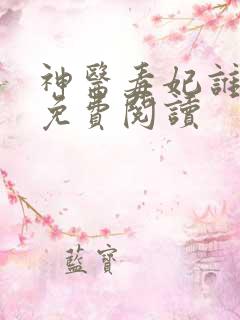 神醫毒妃誰
免費閱讀
藍寶